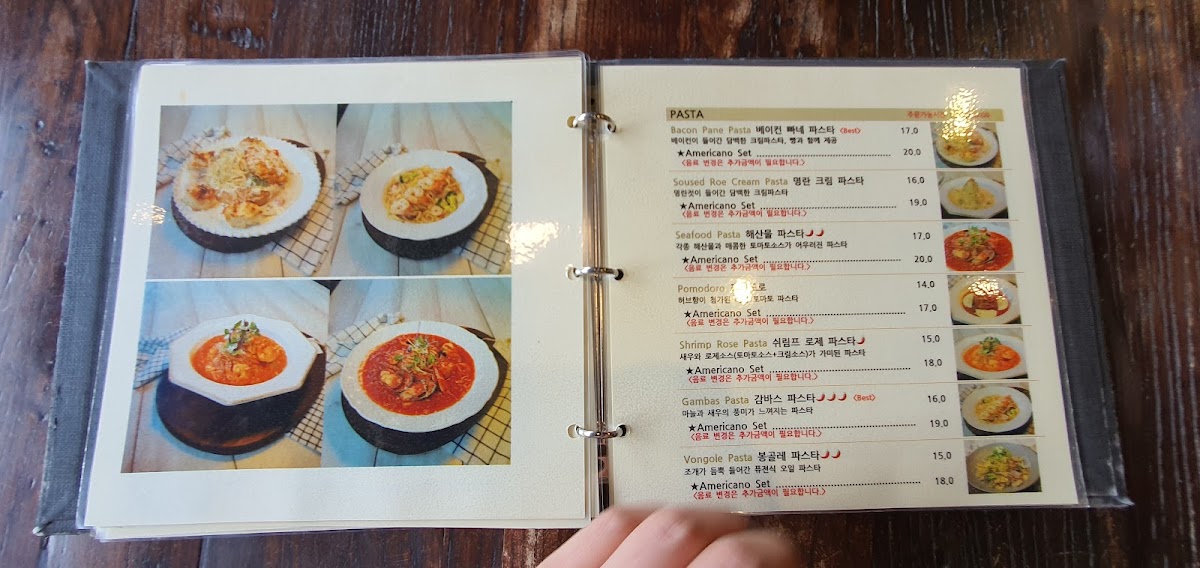 PASTA
주문가능시
Bacon Pane Pasta 베이컨 빠네 파스타 <Best> 17,0
베이컨이 들어간 담백한 크림파스타, 빵과 함께 제공
★Americano Set 20,0
<음료 변경은 추가금액이 필요합니다.>
Soused Roe Cream Pasta 명란 크림 파스타 16,0
명란젓이 들어간 담백한 크림파스타
★Americano Set 19,0
<음료 변경은 추가금액이 필요합니다.>
Seafood Pasta 해산물 파스타 17,0
각종 해산물과 매콤한 토마토소스가 어우러진 파스타
★Americano Set 20,0
<음료 변경은 추가금액이 필요합니다.>
Pomodoro 14,0
허브향이 첨가된 토마토 파스타
★Americano Set 17,0
<음료 변경은 추가금액이 필요합니다.>
Shrimp Rose Pasta 쉬림프 로제 파스타 15,0
새우와 로제소스(토마토소스+크림소스)가 가미된 파스타
★Americano Set 18,0
<음료 변경은 추가금액이 필요합니다.>
Gambas Pasta 감바스 파스타 <Best> 16,0
마늘과 새우의 풍미가 느껴지는 파스타
★Americano Set 19,0
<음료 변경은 추가금액이 필요합니다.>
Vongole Pasta 봉골레 파스타 15,0
조개가 듬뿍 들어간 퓨전식 오일 파스타
★Americano Set 18,0
<음료 변경은 추가금액이 필요합니다.>